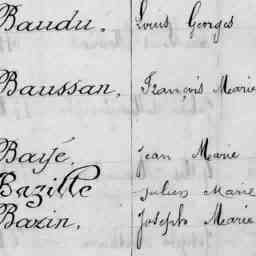 Baudu. Louis Georges
Baussan. François Marie
Bayé. Jean Marie
Bazille Julien Marie
Bazin. Joseph Marie